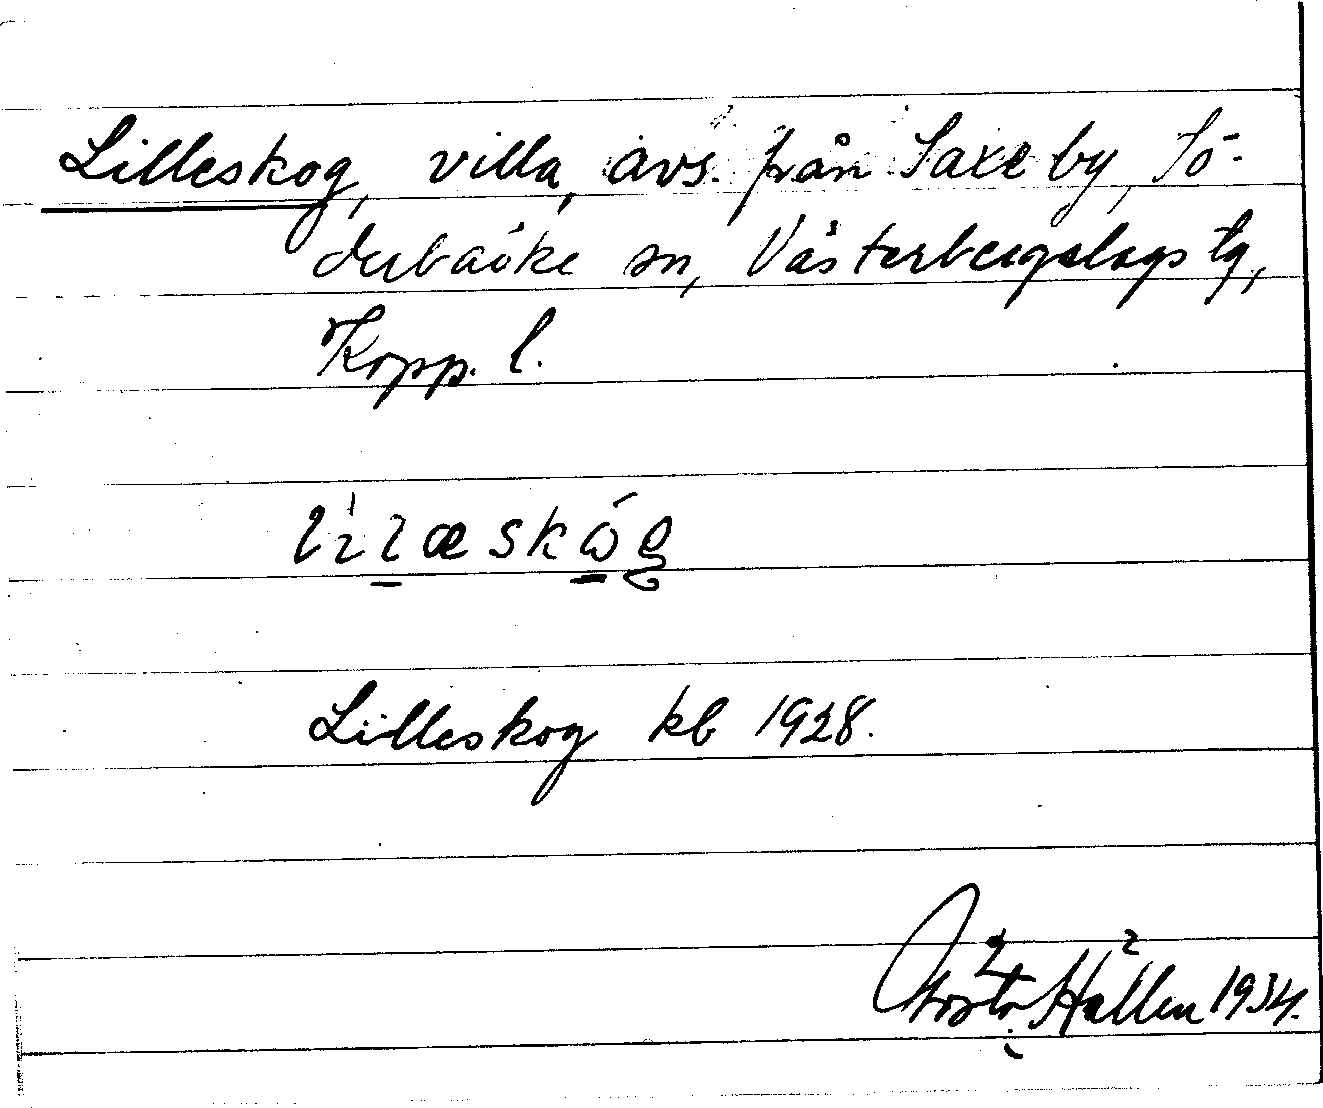 Lilleskog, villa, avs. från Saxe by, Sö-
derbärke sn, Västerbergslags tg,
Kopp. l.
Lilleskog kb 1928.
Gösta Hállen 1934.